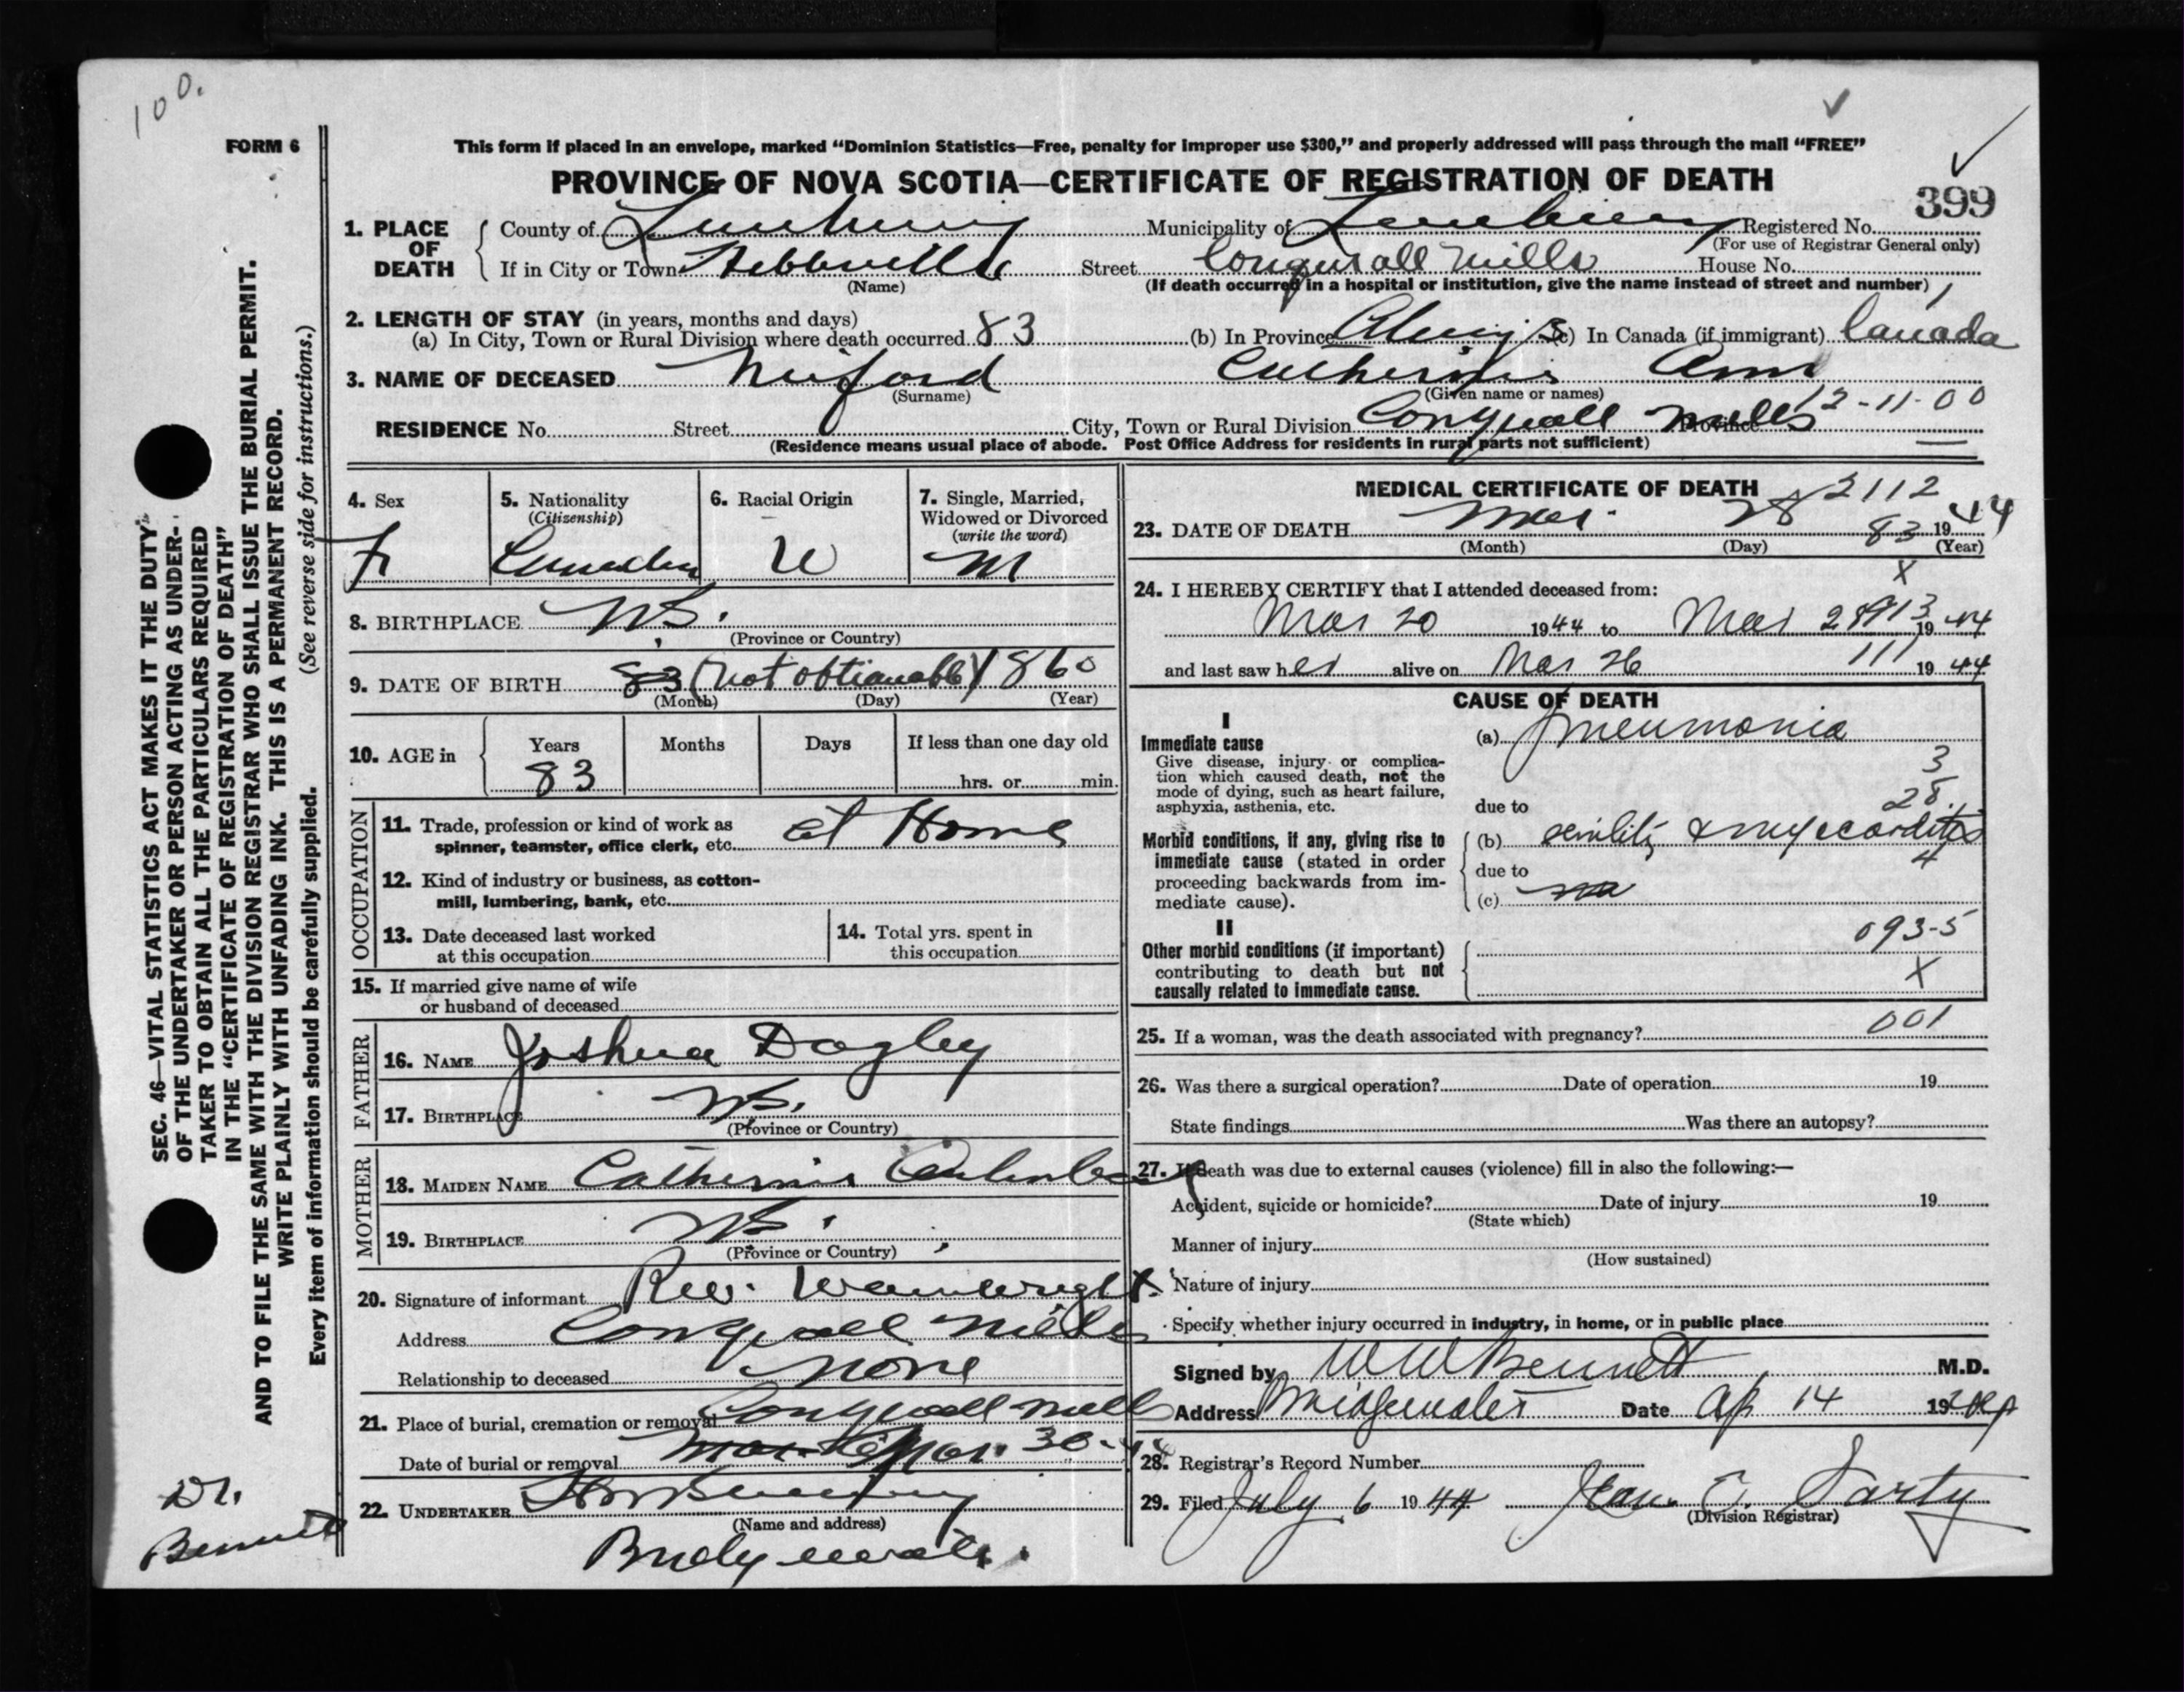 100.
FORM 6
This form if placed in an envelope, marked "Dominion Statistics—Free, penalty for improper use $300," and properly addressed will pass through the mail "FREE"
PROVINCE OF NOVA SCOTIA—CERTIFICATE OF REGISTRATION OF DEATH
399
1. PLACE OF DEATH
County of Lunenburg Municipality of Lunenburg Registered No.
(For use of Registrar General only)
If in City or Town Hebbville Street Conquerall Mills House No.
(Name) (If death occurred in a hospital or institution, give the name instead of street and number)
2. LENGTH OF STAY (in years, months and days)
(a) In City, Town or Rural Division where death occurred 83 (b) In Province (c) In Canada (if immigrant) Canada
3. NAME OF DECEASED Catherine Ann
(Surname) (Given name or names)
12-11-00
RESIDENCE No. Street City, Town or Rural Division Mills Province
(Residence means usual place of abode. Post Office Address for residents in rural parts not sufficient)
4. Sex F
5. Nationality (Citizenship) Canadian
6. Racial Origin
7. Single, Married, Widowed or Divorced (write the word) M
8. BIRTHPLACE N.S.
(Province or Country)
9. DATE OF BIRTH 83 (not obtianable) 1860
(Month) (Day) (Year)
10. AGE in Years Months Days If less than one day old
83 hrs. or min.
OCCUPATION
11. Trade, profession or kind of work as spinner, teamster, office clerk, etc. at Home
12. Kind of industry or business, as cotton-mill, lumbering, bank, etc.
13. Date deceased last worked at this occupation
14. Total yrs. spent in this occupation
15. If married give name of wife or husband of deceased
FATHER
16. NAME Joshua Dagley
17. BIRTHPLACE N.S.
(Province or Country)
MOTHER
18. MAIDEN NAME Catherine
19. BIRTHPLACE N.S.
(Province or Country)
20. Signature of informant Rev. Wainwright
Address Mills
Relationship to deceased none
21. Place of burial, cremation or removal
Date of burial or removal Mar. 30-44
22. UNDERTAKER
(Name and address)
Bridgewater.
MEDICAL CERTIFICATE OF DEATH
2112
23. DATE OF DEATH Mar. 28 83 1944
(Month) (Day) (Year)
X
24. I HEREBY CERTIFY that I attended deceased from:
Mar 20 1944 to Mar 28 1944
and last saw her alive on Mar 26 111 1944
CAUSE OF DEATH
I
Immediate cause
Give disease, injury or complication which caused death, not the mode of dying, such as heart failure, asphyxia, asthenia, etc.
(a) Pneumonia
3
28.
due to
Morbid conditions, if any, giving rise to immediate cause (stated in order proceeding backwards from immediate cause).
(b) senility & myocarditis
4
due to
(c)
II
Other morbid conditions (if important) contributing to death but not causally related to immediate cause.
093-5
X
25. If a woman, was the death associated with pregnancy? 001
26. Was there a surgical operation? Date of operation 19
State findings Was there an autopsy?
27. If death was due to external causes (violence) fill in also the following:—
Accident, suicide or homicide? Date of injury 19
(State which)
Manner of injury
(How sustained)
Nature of injury
Specify whether injury occurred in industry, in home, or in public place
Signed by W W Bennett M.D.
Address Bridgewater Date Ap 14 19
28. Registrar's Record Number
29. Filed July 6 1944 Jean C. Sarty
(Division Registrar)
SEC. 46—VITAL STATISTICS ACT MAKES IT THE DUTY
OF THE UNDERTAKER OR PERSON ACTING AS UNDER-
TAKER TO OBTAIN ALL THE PARTICULARS REQUIRED
IN THE "CERTIFICATE OF REGISTRATION OF DEATH"
AND TO FILE THE SAME WITH THE DIVISION REGISTRAR WHO SHALL ISSUE THE BURIAL PERMIT.
WRITE PLAINLY WITH UNFADING INK. THIS IS A PERMANENT RECORD.
Every item of information should be carefully supplied. (See reverse side for instructions.)
Dr.
Bennett